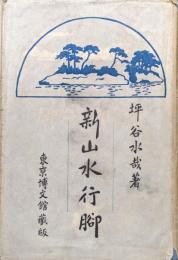 坪谷水哉著
新山水行脚
東京博文館蔵版